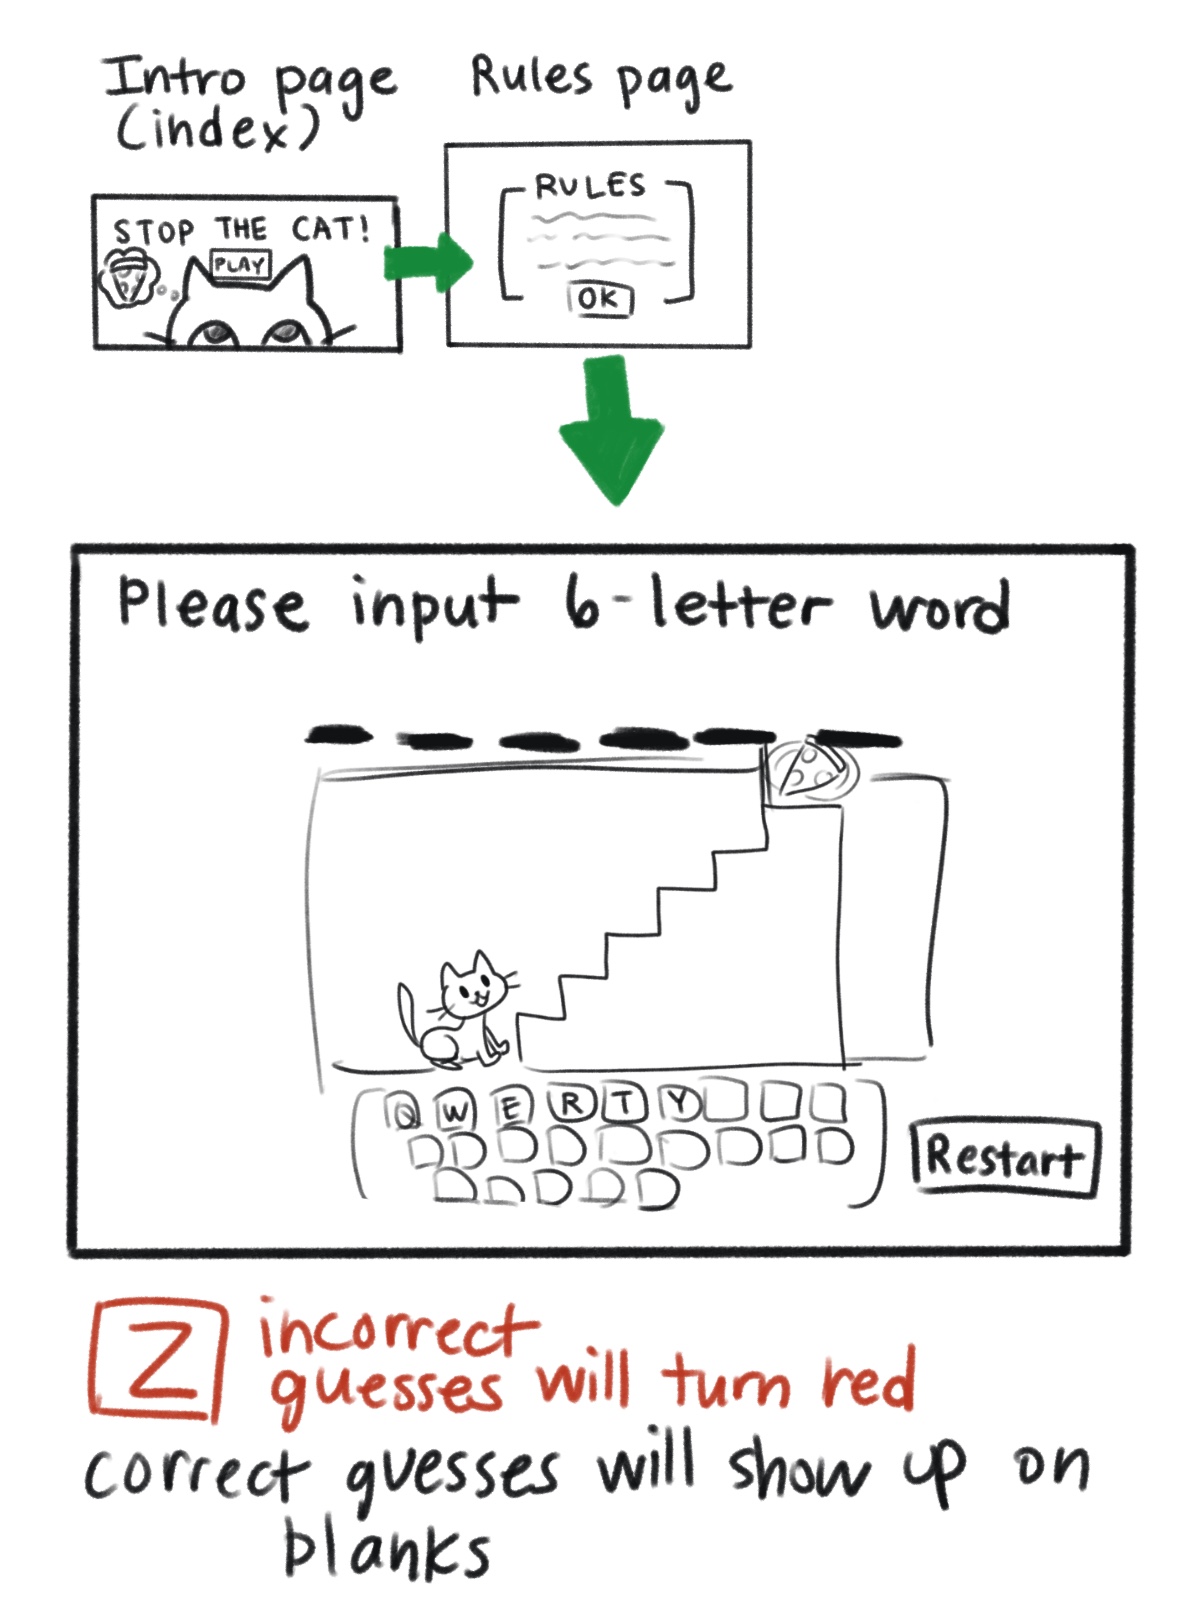 Intro page
(index)
Rules page
STOP THE CAT!
PLAY
RULES
OK
Please input 6-letter word
Q W E R T Y
Restart
Z
incorrect
guesses will turn red
correct guesses will show up on
blanks